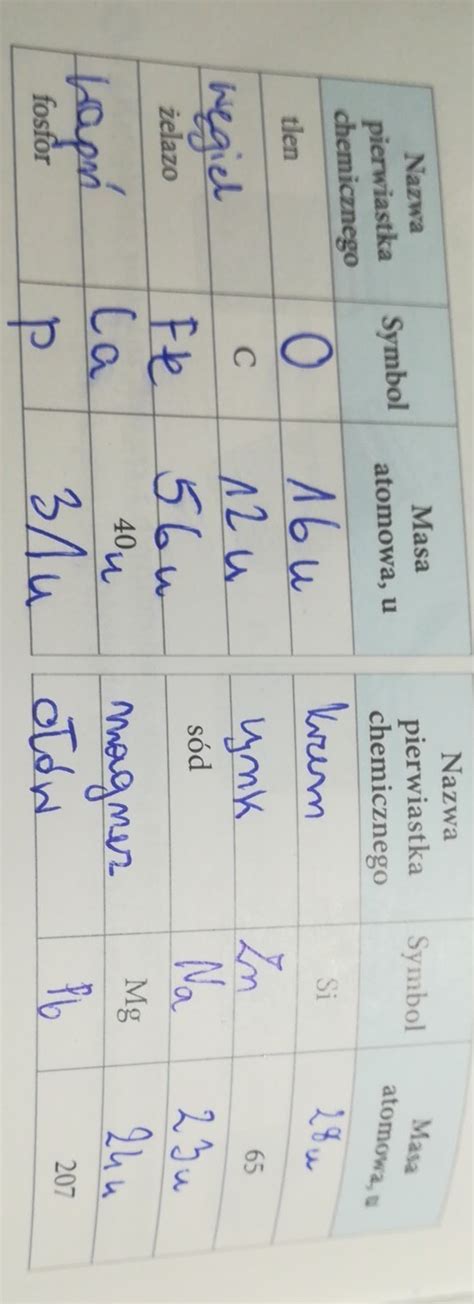 Nazwa pierwiastka chemicznego Symbol Masa atomowa, u
tlen O 16u
węgiel C 12u
żelazo Fe 56u
wapń Ca 40u
fosfor P 31u
Nazwa pierwiastka chemicznego Symbol Masa atomowa, u
krzem Si 28u
cynk Zn 65
sód Na 23u
magnez Mg 24u
ołów Pb 207